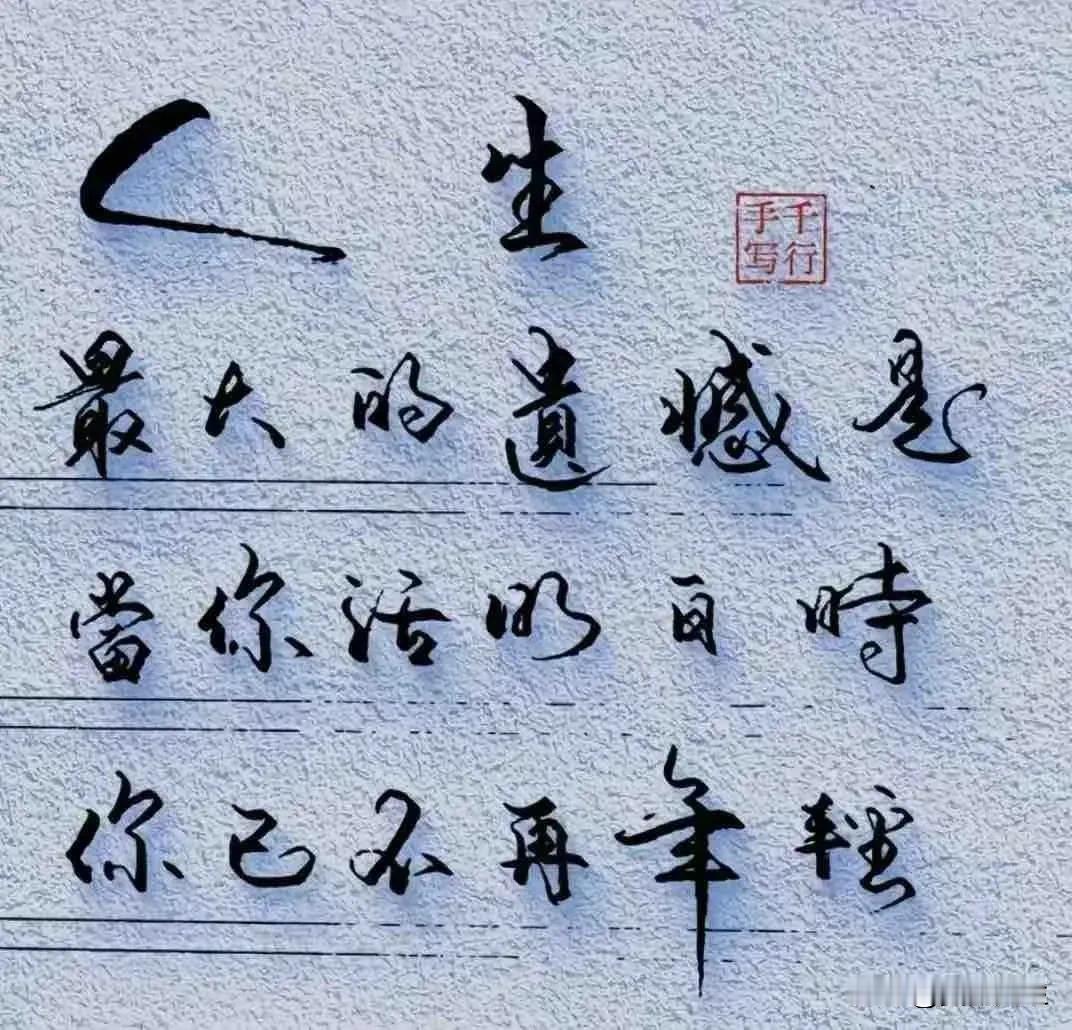 人生
千行
手写
最大的遺憾是
當你活明白時
你已不再年輕